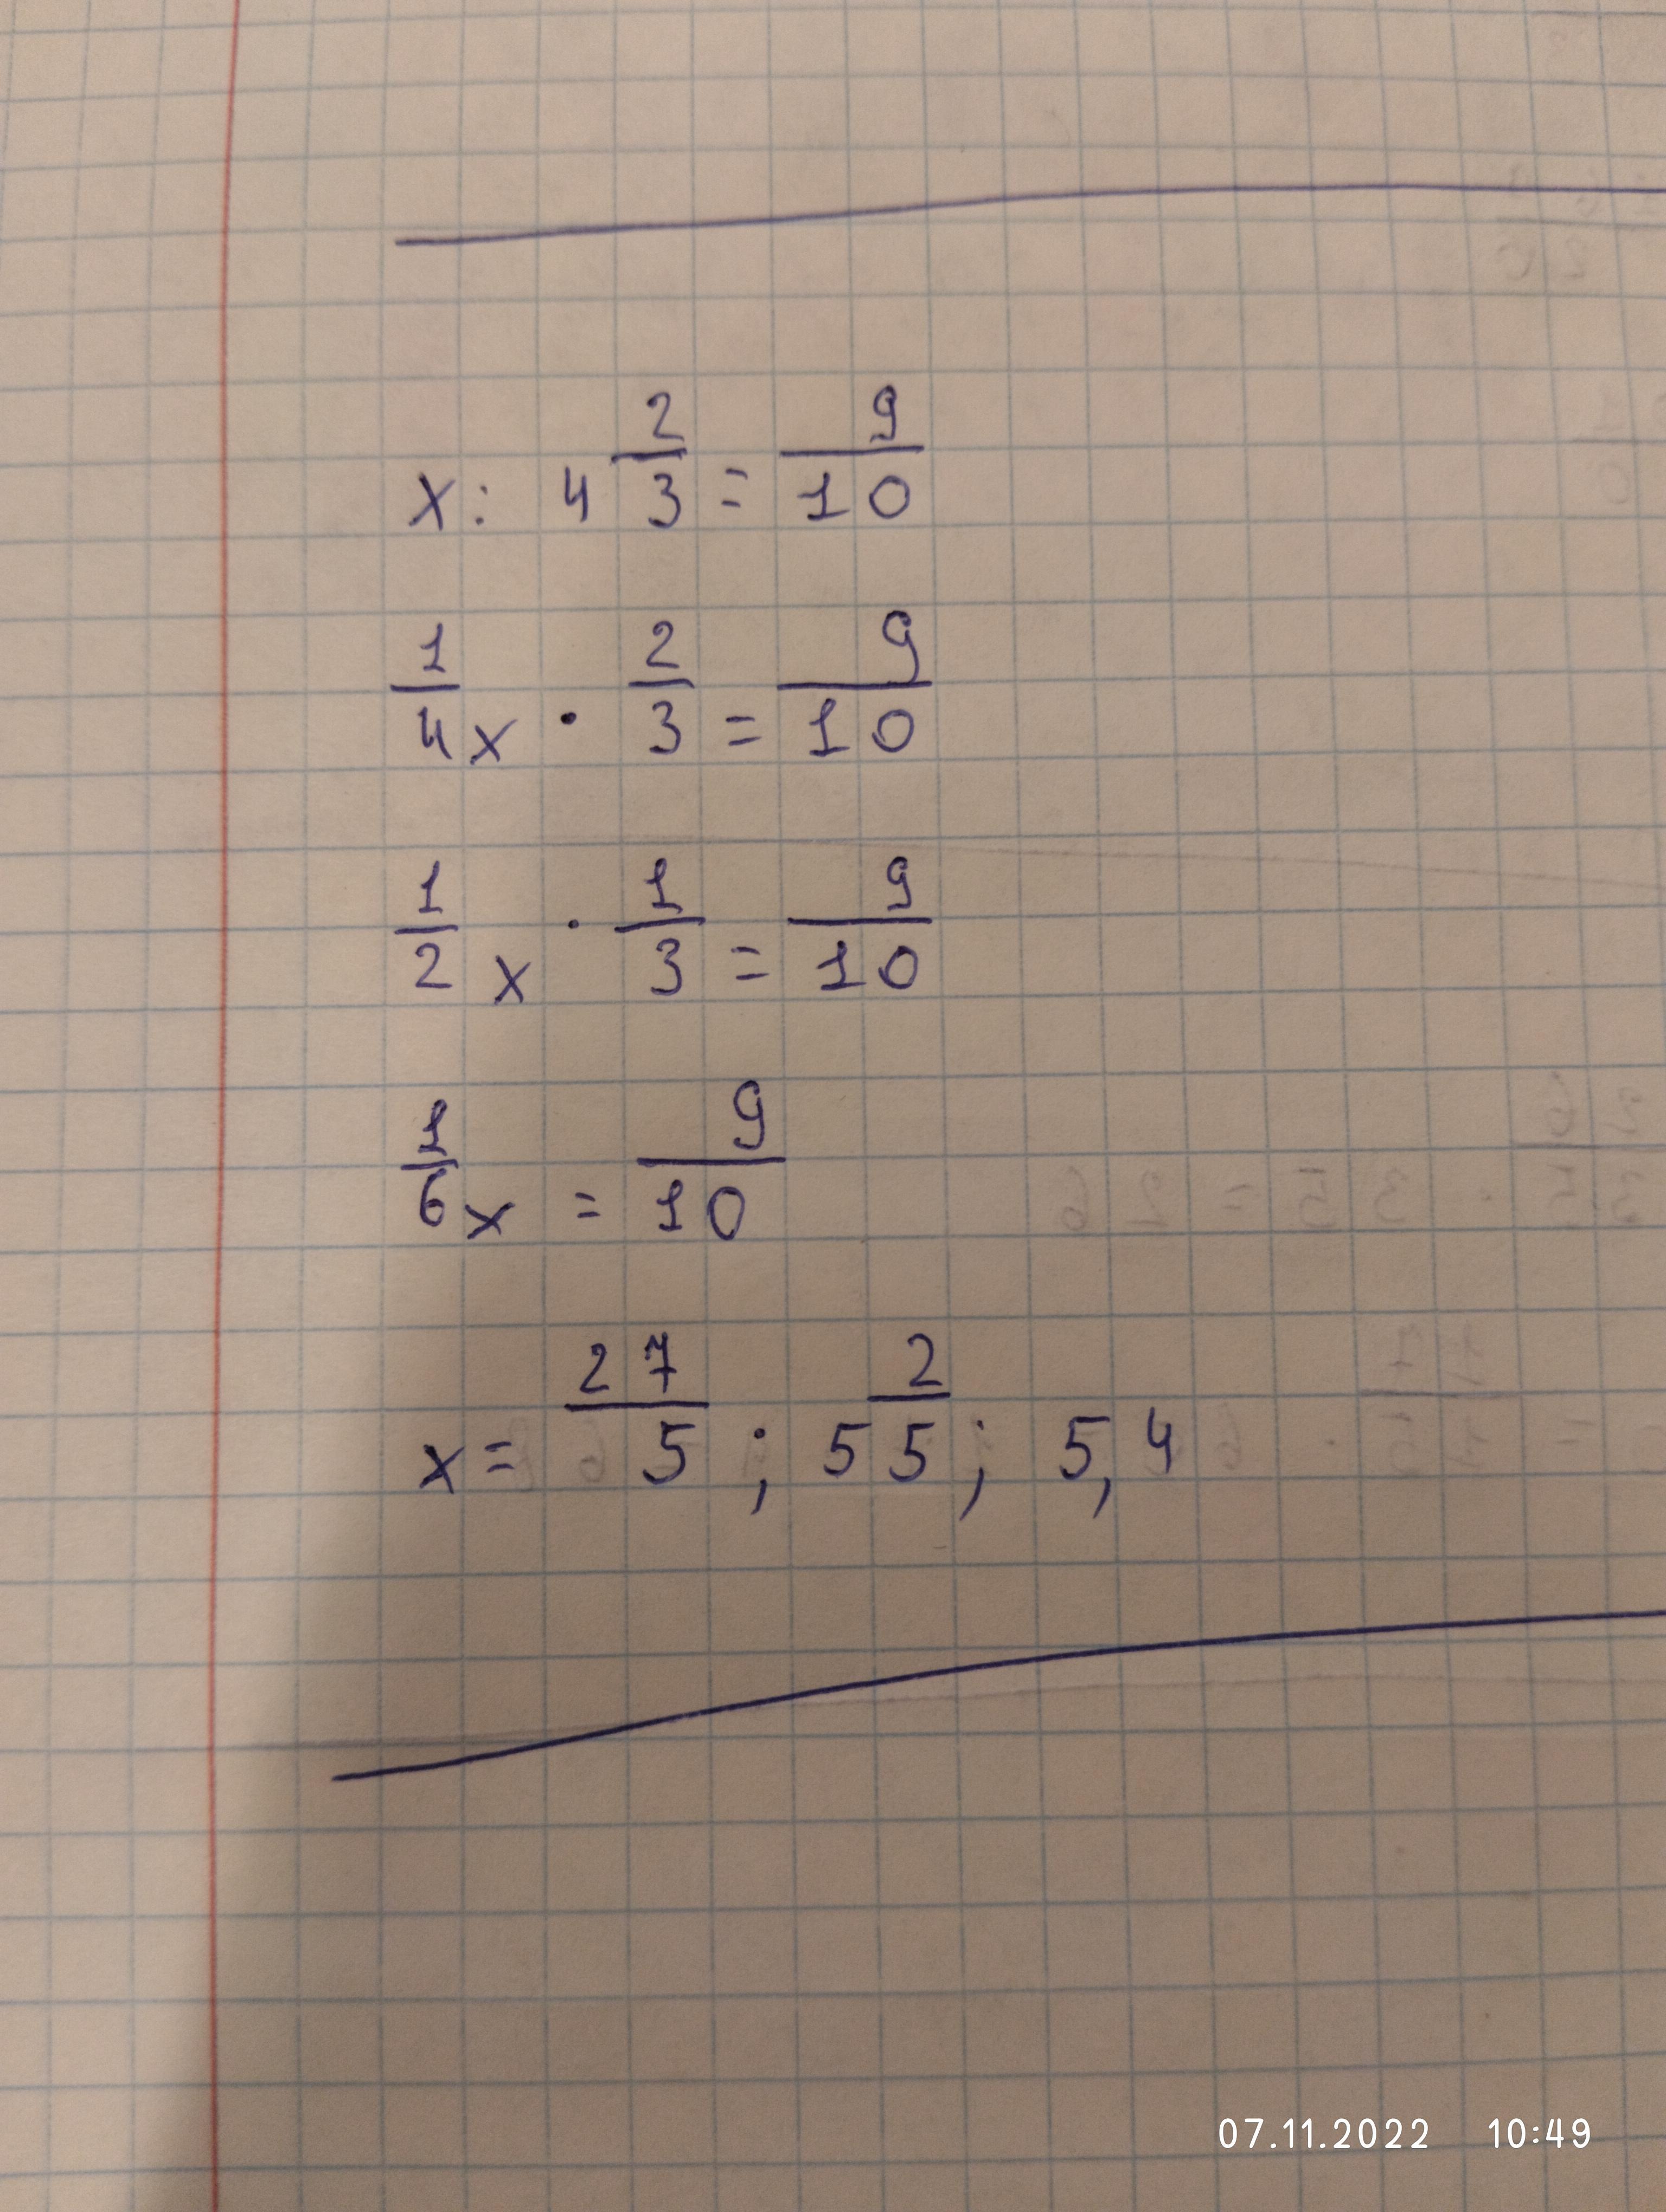 x : 4 2/3 = 9/10
1/4 x · 2/3 = 9/10
1/2 x · 1/3 = 9/10
1/6 x = 9/10
x = 27/5 ; 5 2/5 ; 5,4
07.11.2022 10:49